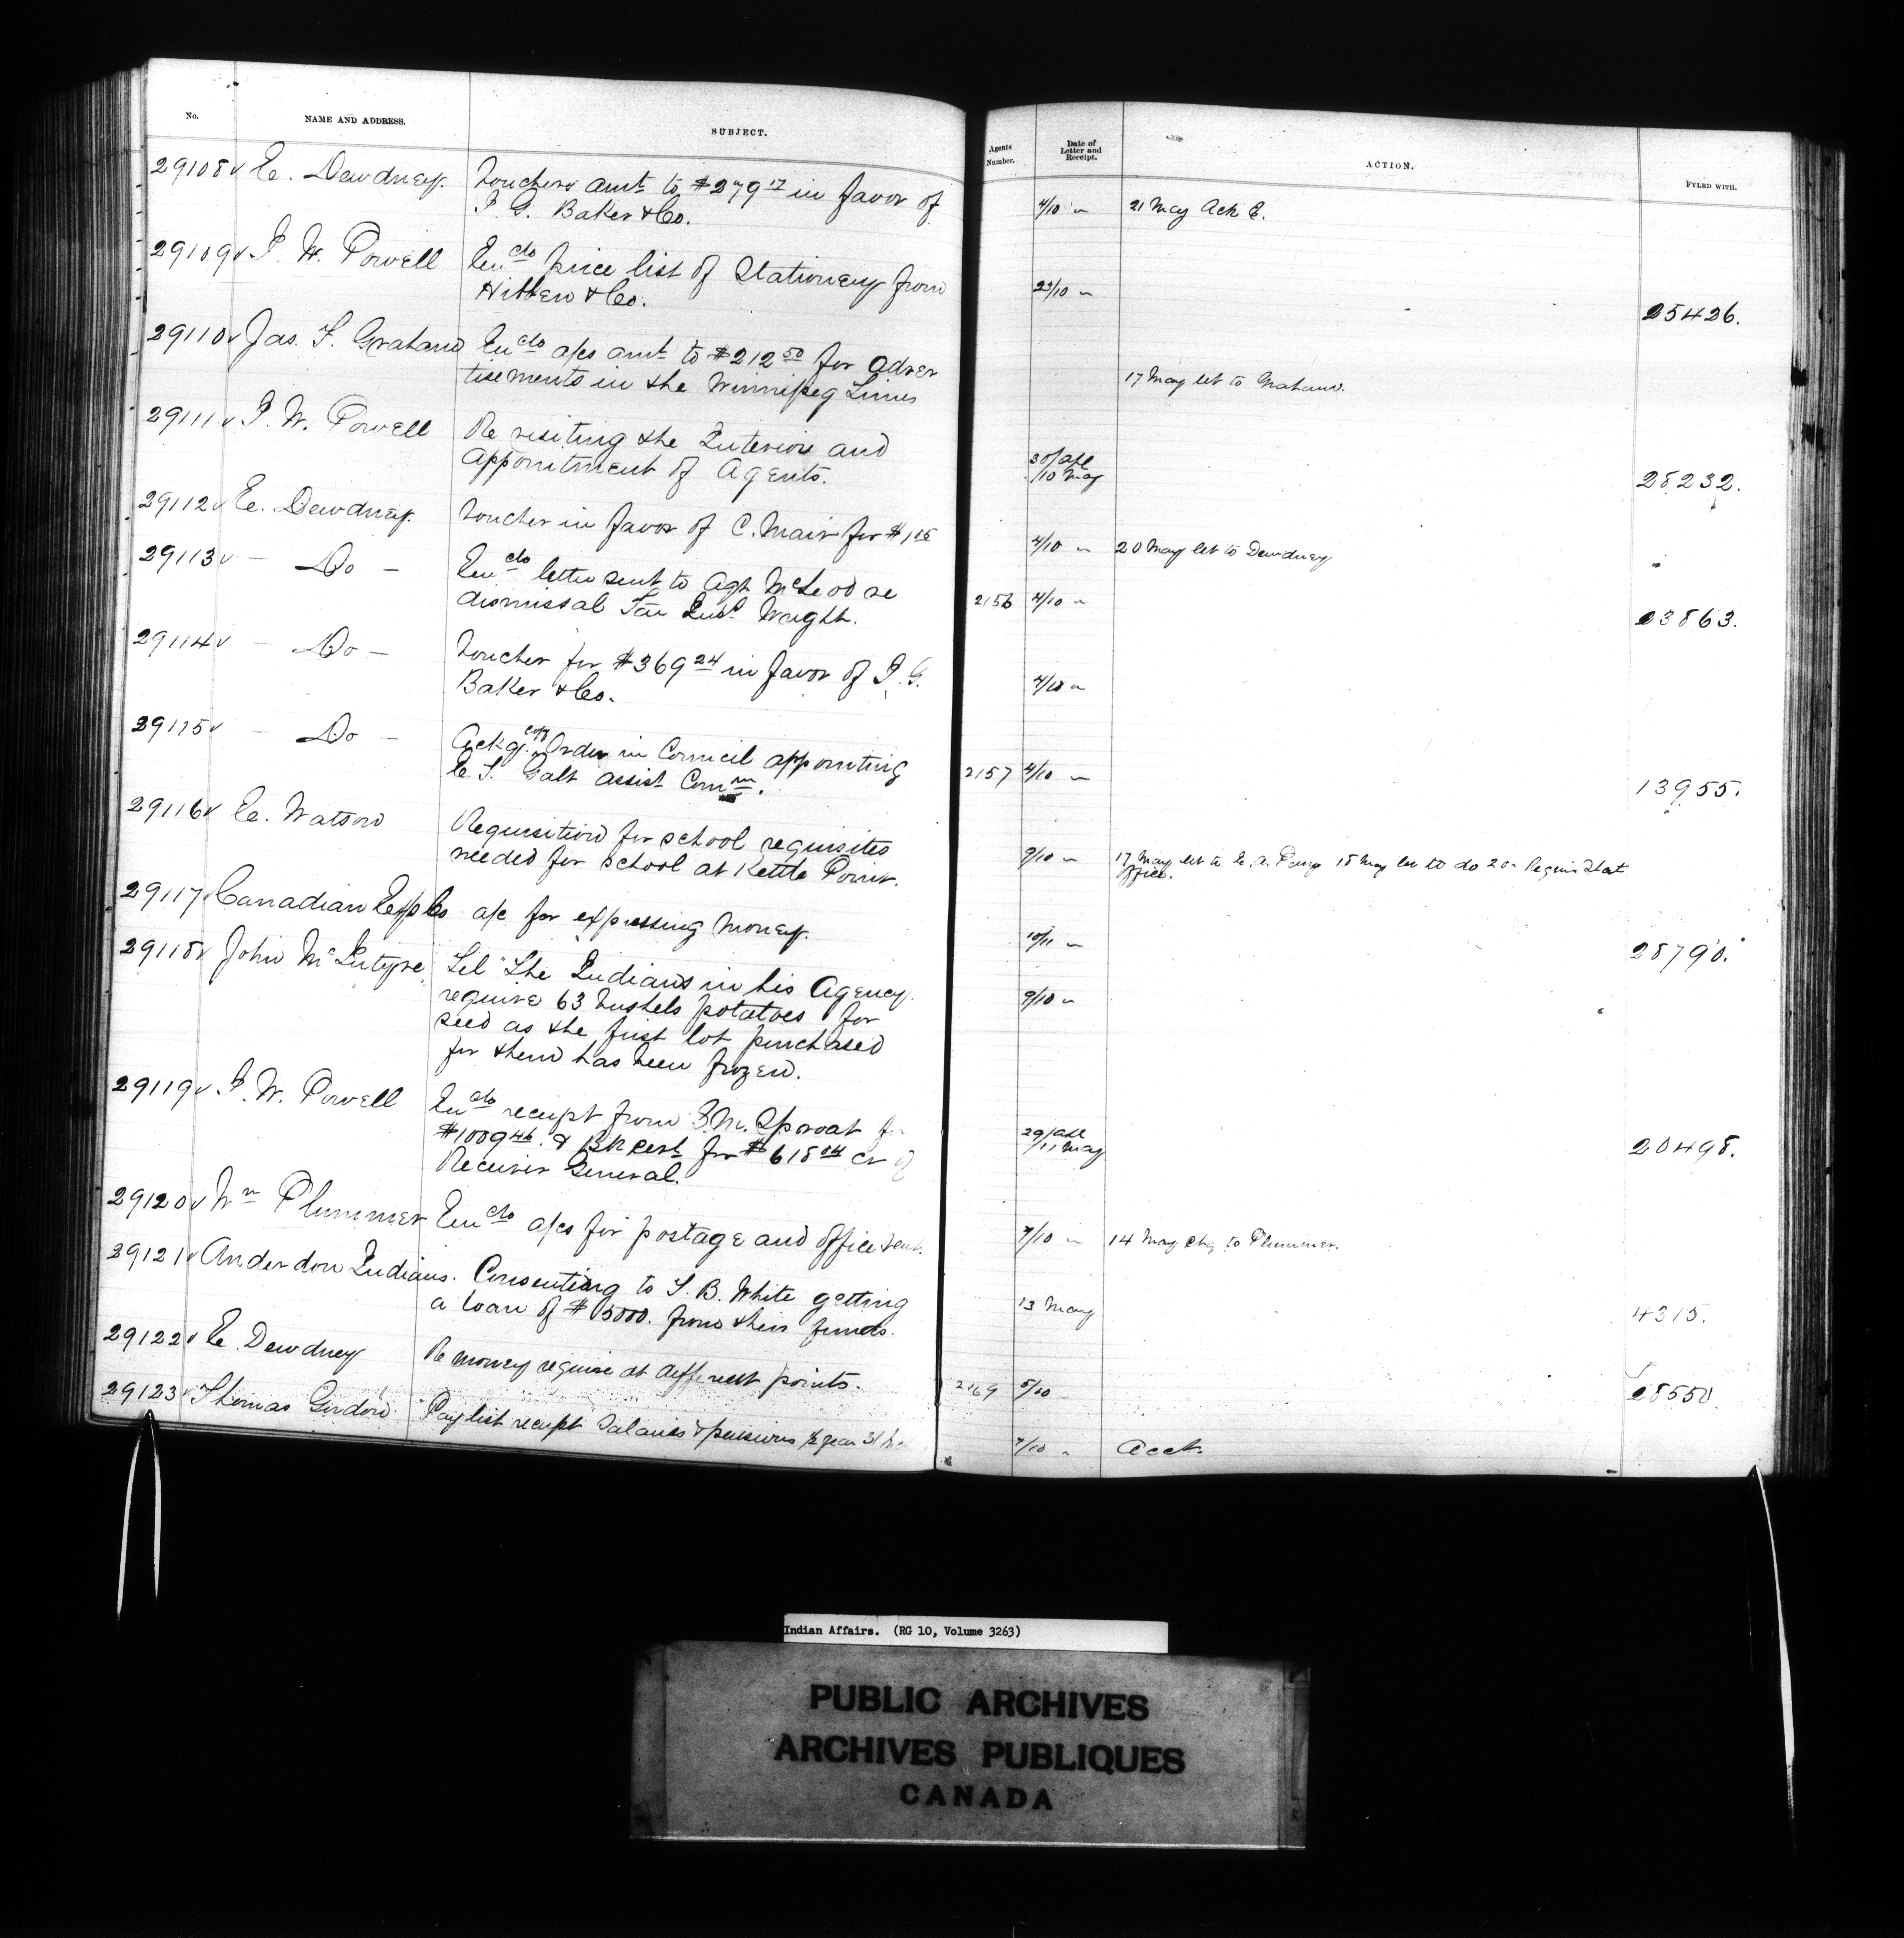 No. NAME AND ADDRESS. SUBJECT. Agents Number. Date of Letter and Receipt. ACTION. FYLED WITH.
29108 E. Dewdney. Vouchers amt to $279 17 in favor of
I. G. Baker & Co. 4/10 " 21 May Ack E.
29109 I. W. Powell Encls price list of Stationery from
Hibben & Co. 23/10 " 25426.
29110 Jas. F. Graham Encls a/cs amt to $212 50 for adver
tisements in the Winnipeg Times 17 May let to Graham.
29111 I. W. Powell Re visiting the Interior and
appointment of Agents. 30/apl /10 May 28232.
29112 E. Dewdney. Voucher in favor of C. Mair for $1 05 4/10 " 20 May let to Dewdney
29113 – Do – Encls letter sent to Agt McLeod re
dismissal Far Ins. Wright. 2156 4/10 " 23863.
29114 – Do – Voucher for $369 24 in favor of I. G.
Baker & Co. 4/10 "
29115 – Do – Ackg. copy Order in Council appointing
E T. Galt assist Commr. 2157 4/10 " 13955.
29116 E. Watson Requisition for school requisites
needed for school at Kettle Point. 9/10 " 17 May let to 18 May let to do 20 " Requis Stat
Office.
29117 Canadian Exp Co a/c for expressing money. 10/11 " 28790.
29118 John McIntyre Tel "The Indians in his Agency
require 63 bushels potatoes for
seed as the first lot purchased
for them has been frozen. 9/10 "
29119 I. W. Powell Encls receipt from G. M. Sproat for
$1009 46. & Bk cert for $618 04 cr of
Receiver General. 29/apl /11 May 20498.
29120 Wm Plummer Encls a/cs for postage and office rent. 7/10 " 14 May chq to Plummer.
29121 Anderdon Indians. Consenting to T. B. White getting
a loan of $ 5000. from their funds. 13 May 4315.
29122 E Dewdney Re money require at different points. 2169 5/10 28550.
29123 Thomas Gordon Paylist receipt Salaries & pensions ½ year 31 7/10 " Acct.
Indian Affairs. (RG 10, Volume 3263)
PUBLIC ARCHIVES
ARCHIVES PUBLIQUES
CANADA